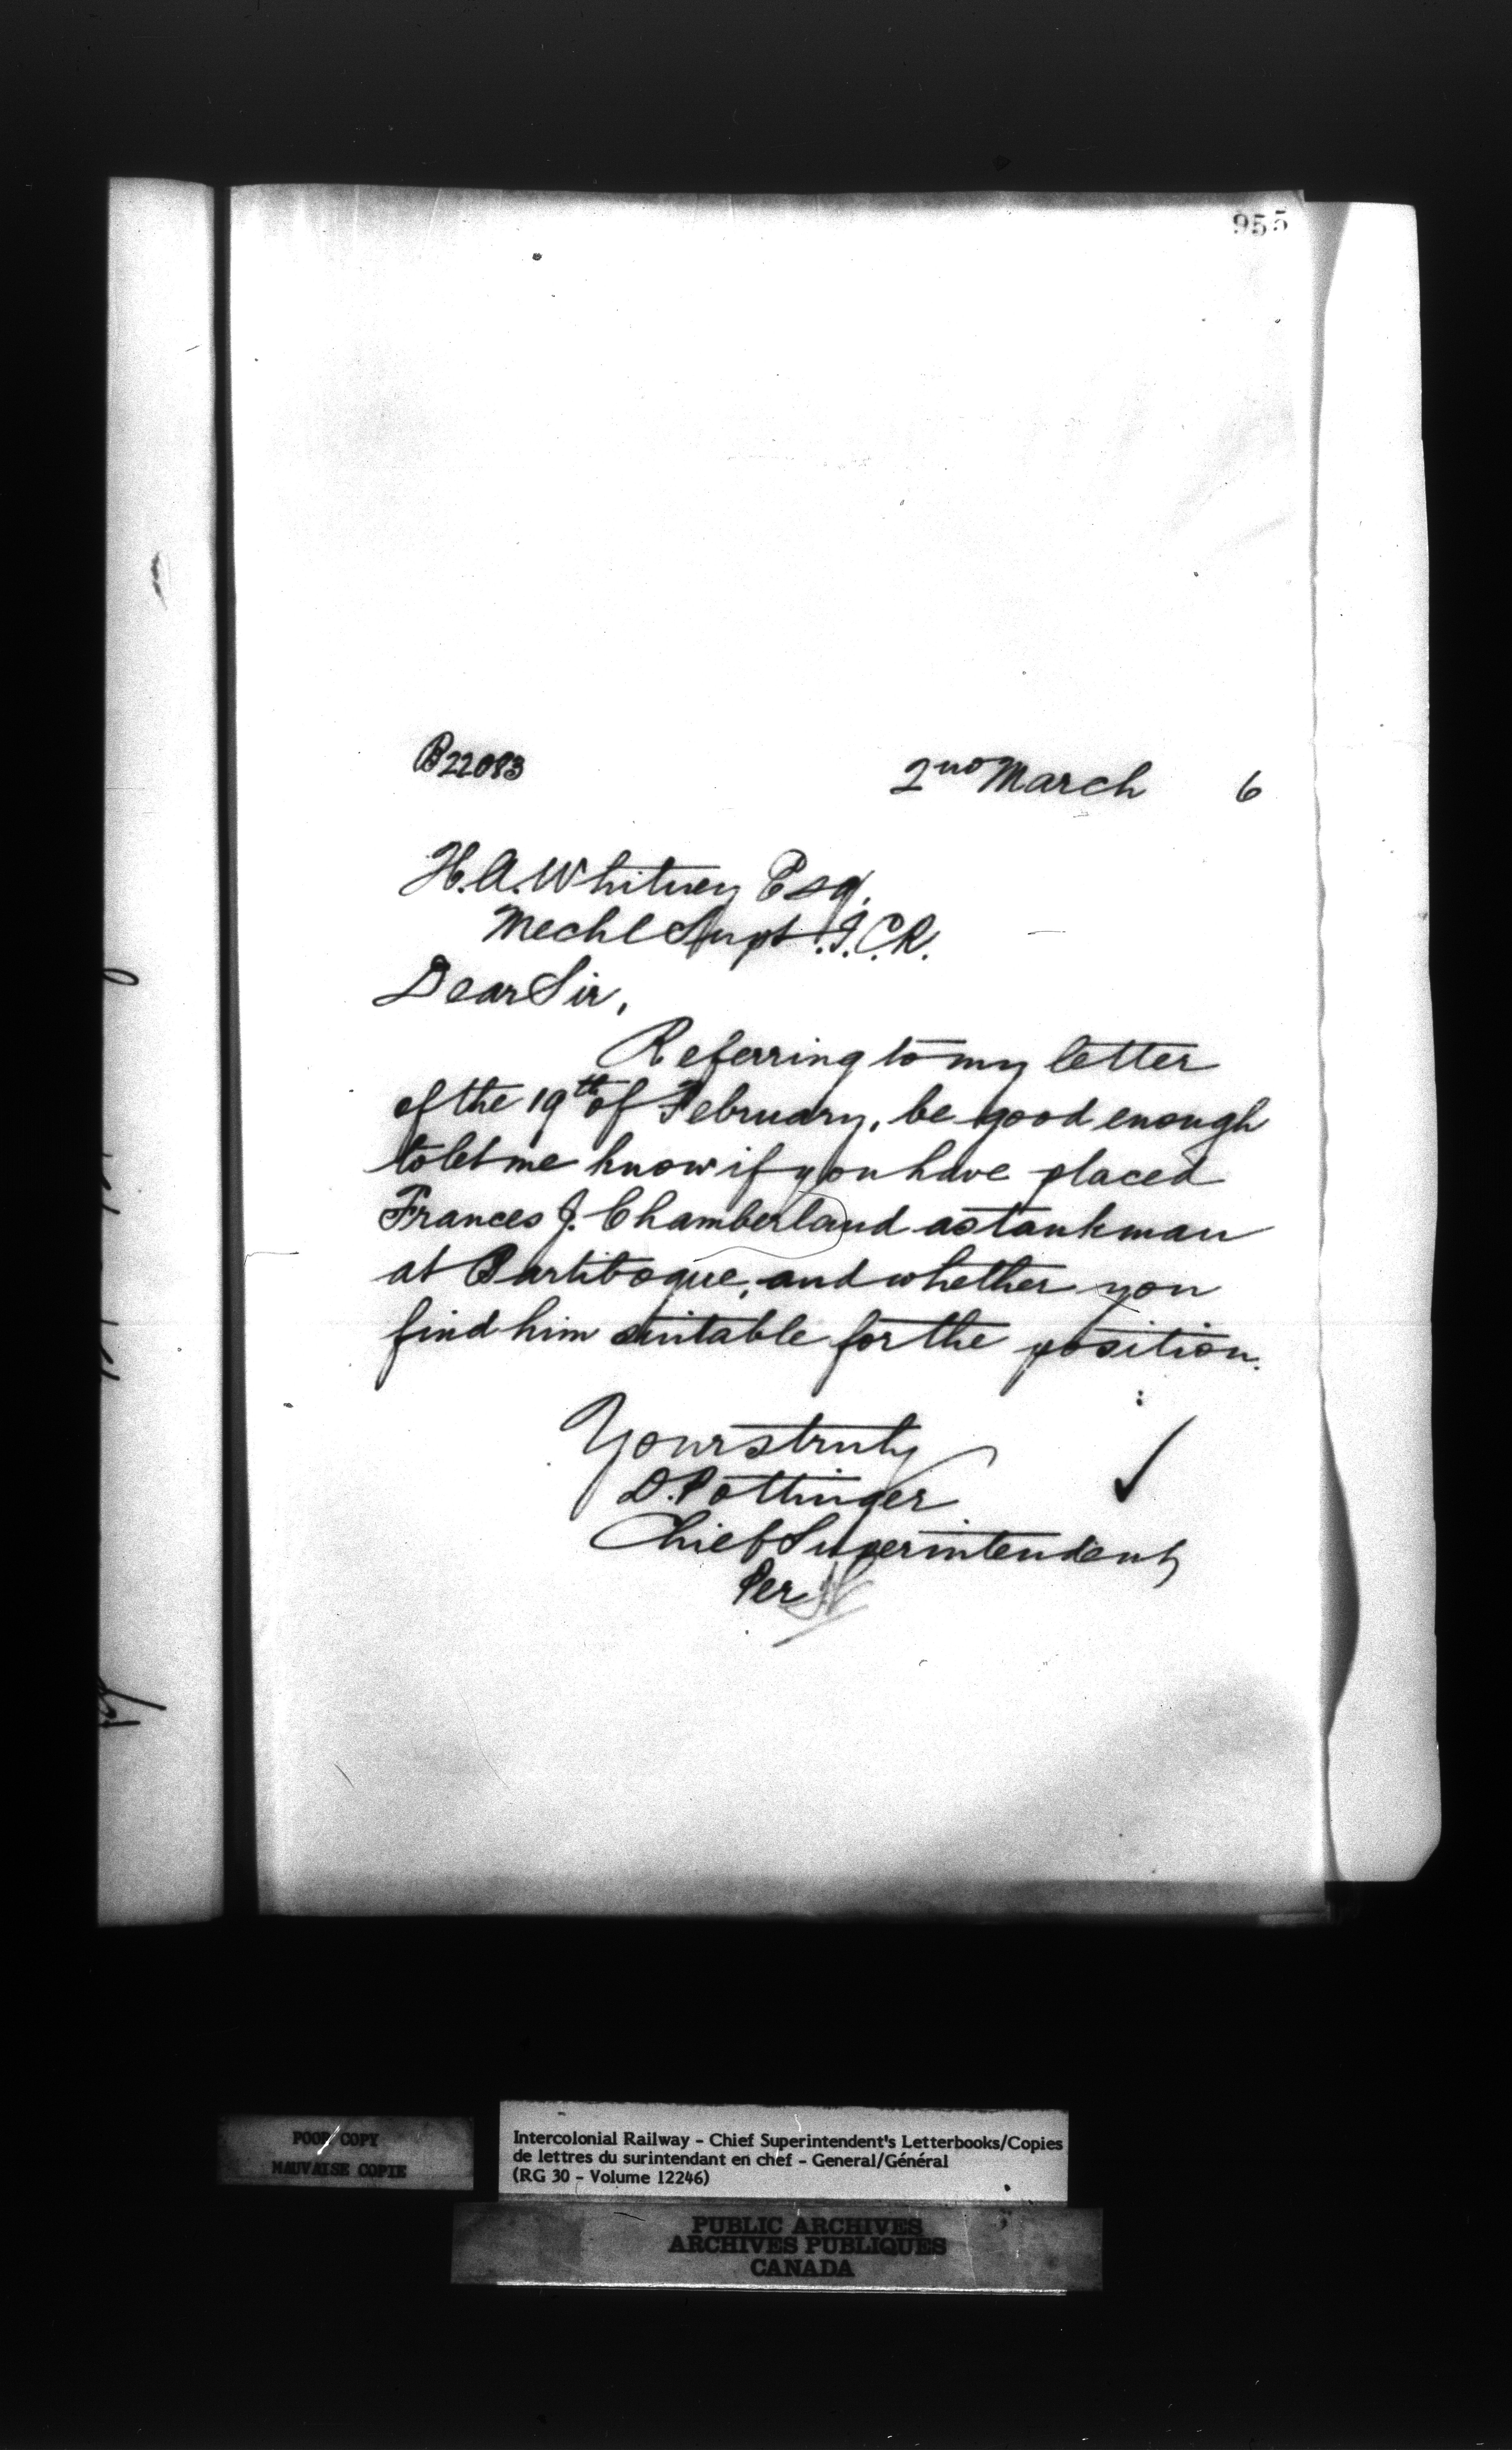 955
B22083
2nd March 6
H.A. Whitney Esq.
Mechl Supt. I.C.R.
Dear Sir,
Referring to my letter
of the 19th of February, be good enough
to let me know if you have placed
Frances J. Chamberland as tankman
at Bartibogue, and whether you
find him suitable for the position.
Yours truly
D. Pottinger
Chief Superintendent
Per
POOR COPY
MAUVAISE COPIE
Intercolonial Railway - Chief Superintendent's Letterbooks/Copies
de lettres du surintendant en chef - General/Général
(RG 30 - Volume 12246)
PUBLIC ARCHIVES
ARCHIVES PUBLIQUES
CANADA